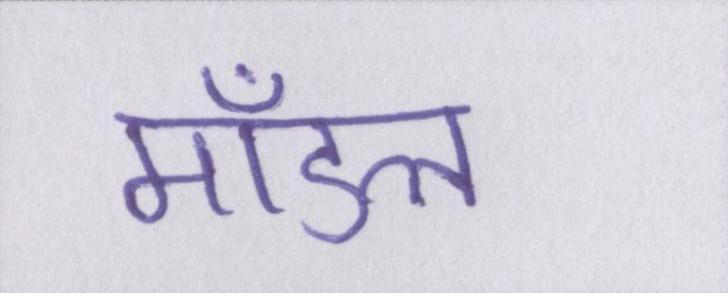 माँडल